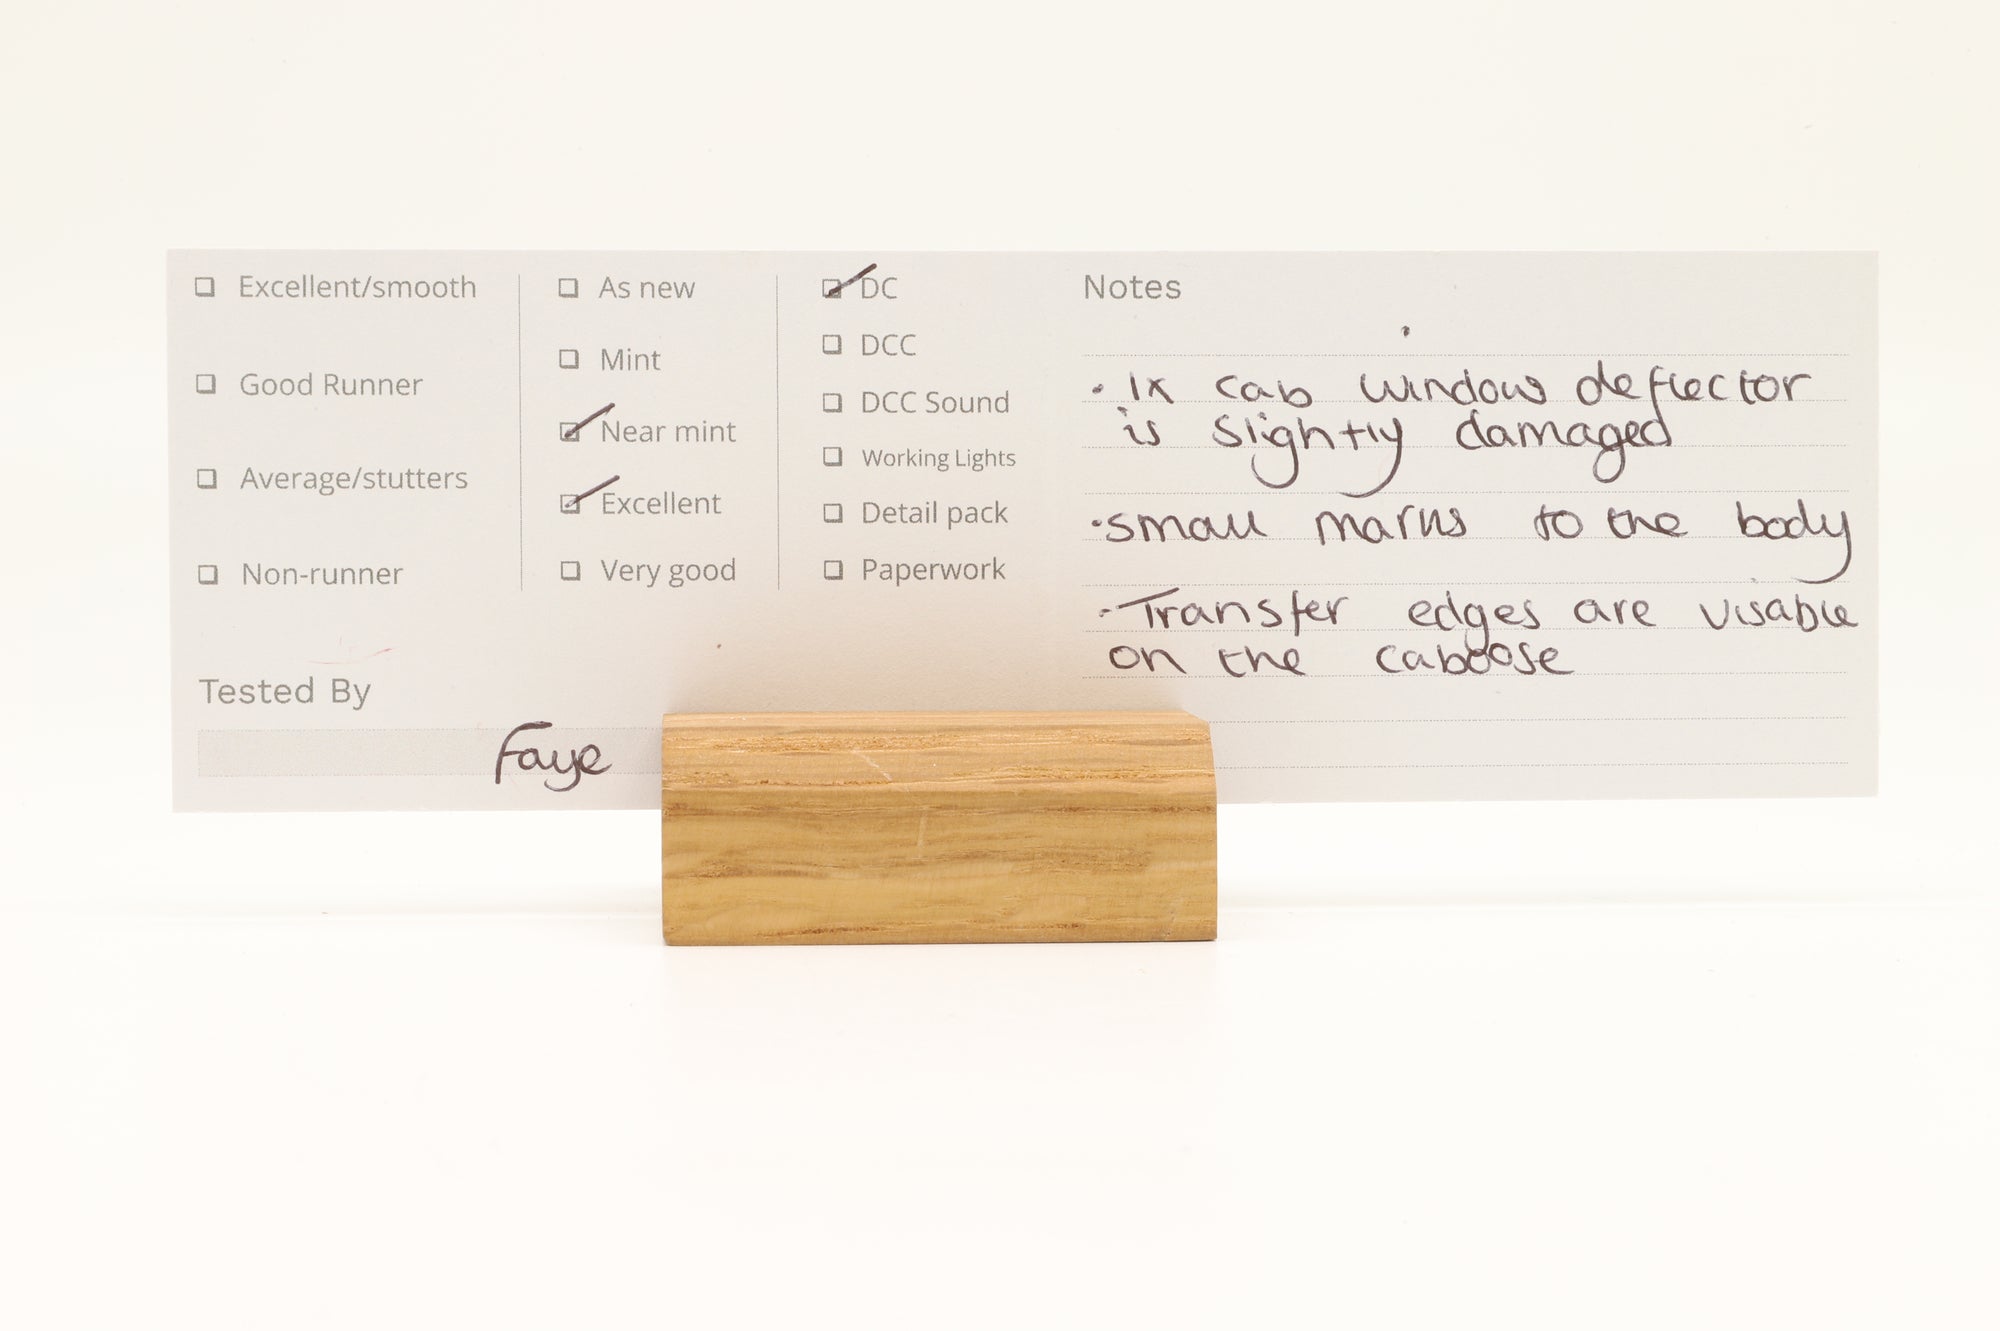 Excellent/smooth
Good Runner
Average/stutters
Non-runner
Tested By
Faye
As new
Mint
Near mint
Excellent
Very good
DC
DCC
DCC Sound
Working Lights
Detail pack
Paperwork
Notes
· 1x cab window deflector
is slightly damaged
· small marks to the body
· Transfer edges are visable
on the caboose